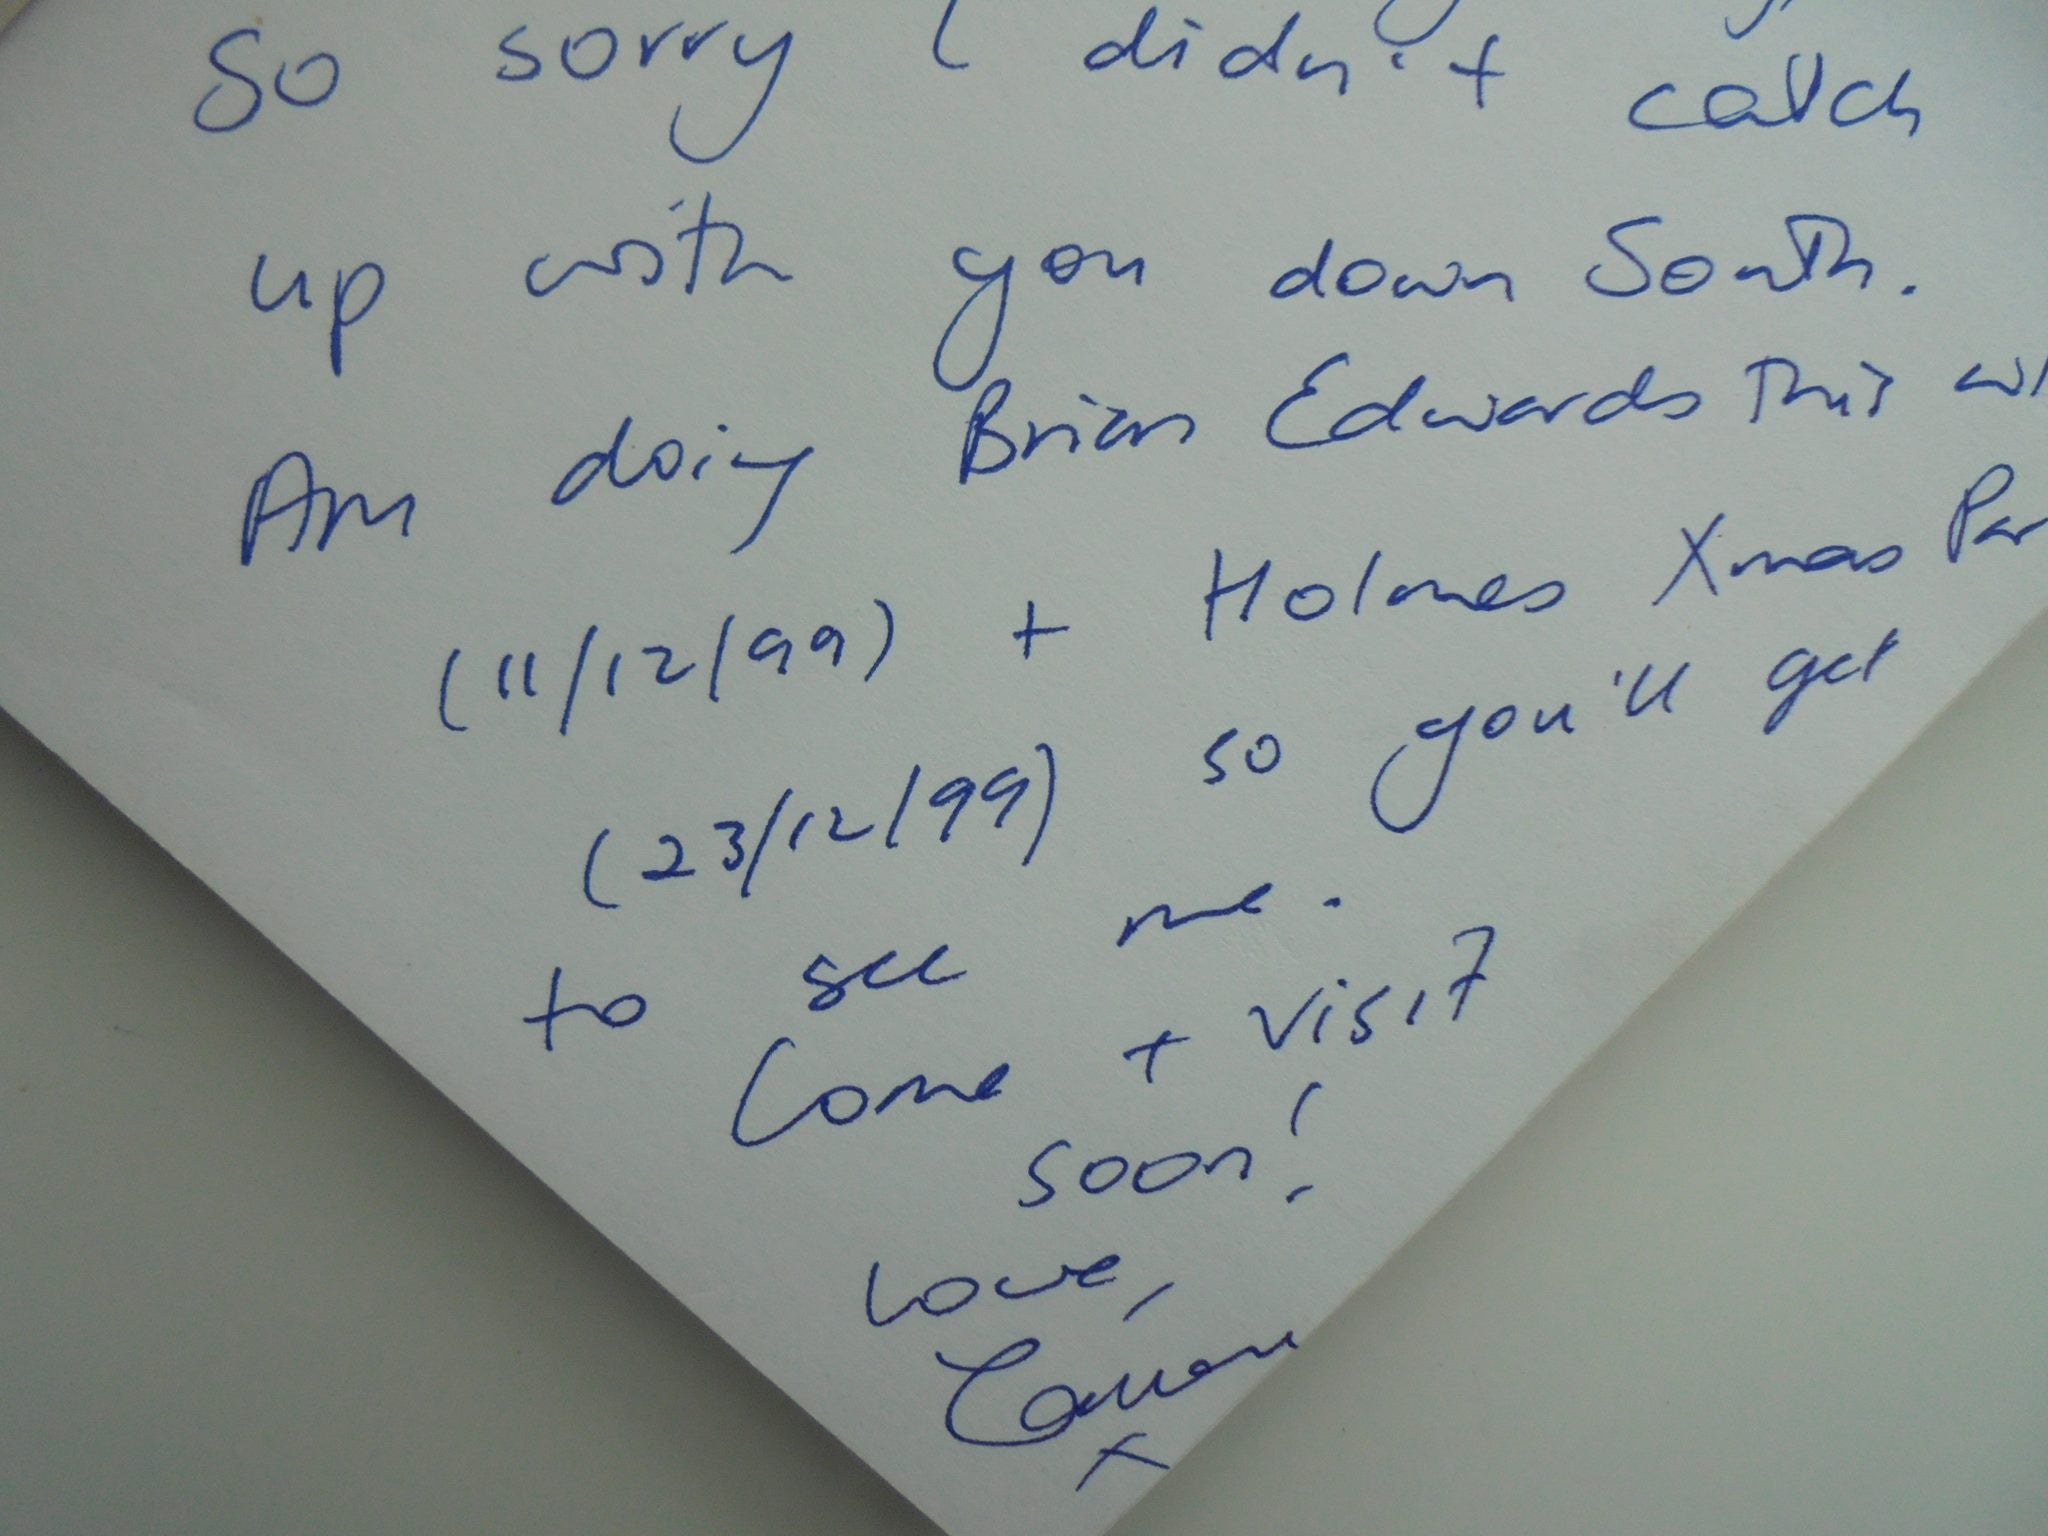 So sorry I didn't catch
up with you down South.
Am doing Brian Edwards this
(11/12/99) + Holmes Xmas
(23/12/99) so you'll get
to see me.
Come + visit
soon!
Love,
x